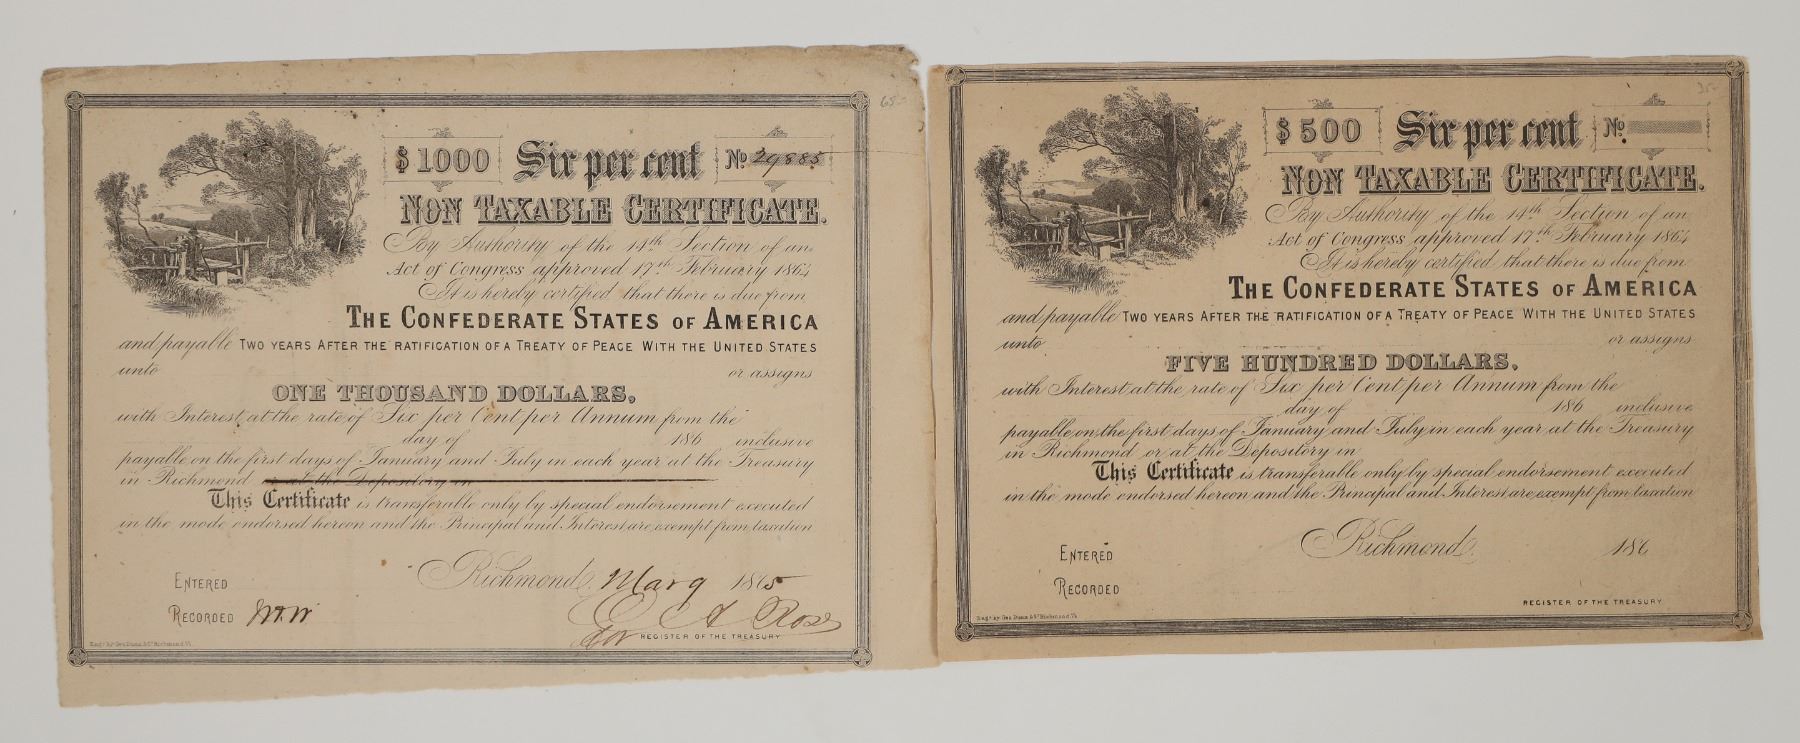 65-
$1000 Six per cent No. 29885
NON TAXABLE CERTIFICATE.
By Authority of the 14th Section of an
Act of Congress approved 17th February 1864
It is hereby certified that there is due from
THE CONFEDERATE STATES OF AMERICA
and payable TWO YEARS AFTER THE RATIFICATION OF A TREATY OF PEACE WITH THE UNITED STATES
unto or assigns
ONE THOUSAND DOLLARS,
with Interest at the rate of Six per Cent per Annum from the
day of 186 inclusive
payable on the first days of January and July in each year at the Treasury
in Richmond or at the Depository in
This Certificate is transferable only by special endorsement executed
in the mode endorsed hereon and the Principal and Interest are exempt from taxation
Richmond, Mar 9 1865
ENTERED
RECORDED
E A Ross
for REGISTER OF THE TREASURY
Engd. by Geo. Dunn & Co. Richmond Va.
35-
$500 Six per cent No.
NON TAXABLE CERTIFICATE.
By Authority of the 14th Section of an
Act of Congress approved 17th February 1864
It is hereby certified that there is due from
THE CONFEDERATE STATES OF AMERICA
and payable TWO YEARS AFTER THE RATIFICATION OF A TREATY OF PEACE WITH THE UNITED STATES
unto or assigns
FIVE HUNDRED DOLLARS,
with Interest at the rate of Six per Cent per Annum from the
day of 186 inclusive
payable on the first days of January and July in each year at the Treasury
in Richmond or at the Depository in
This Certificate is transferable only by special endorsement executed
in the mode endorsed hereon and the Principal and Interest are exempt from taxation
Richmond, 186
ENTERED
RECORDED
REGISTER OF THE TREASURY
Engd. by Geo. Dunn & Co. Richmond Va.